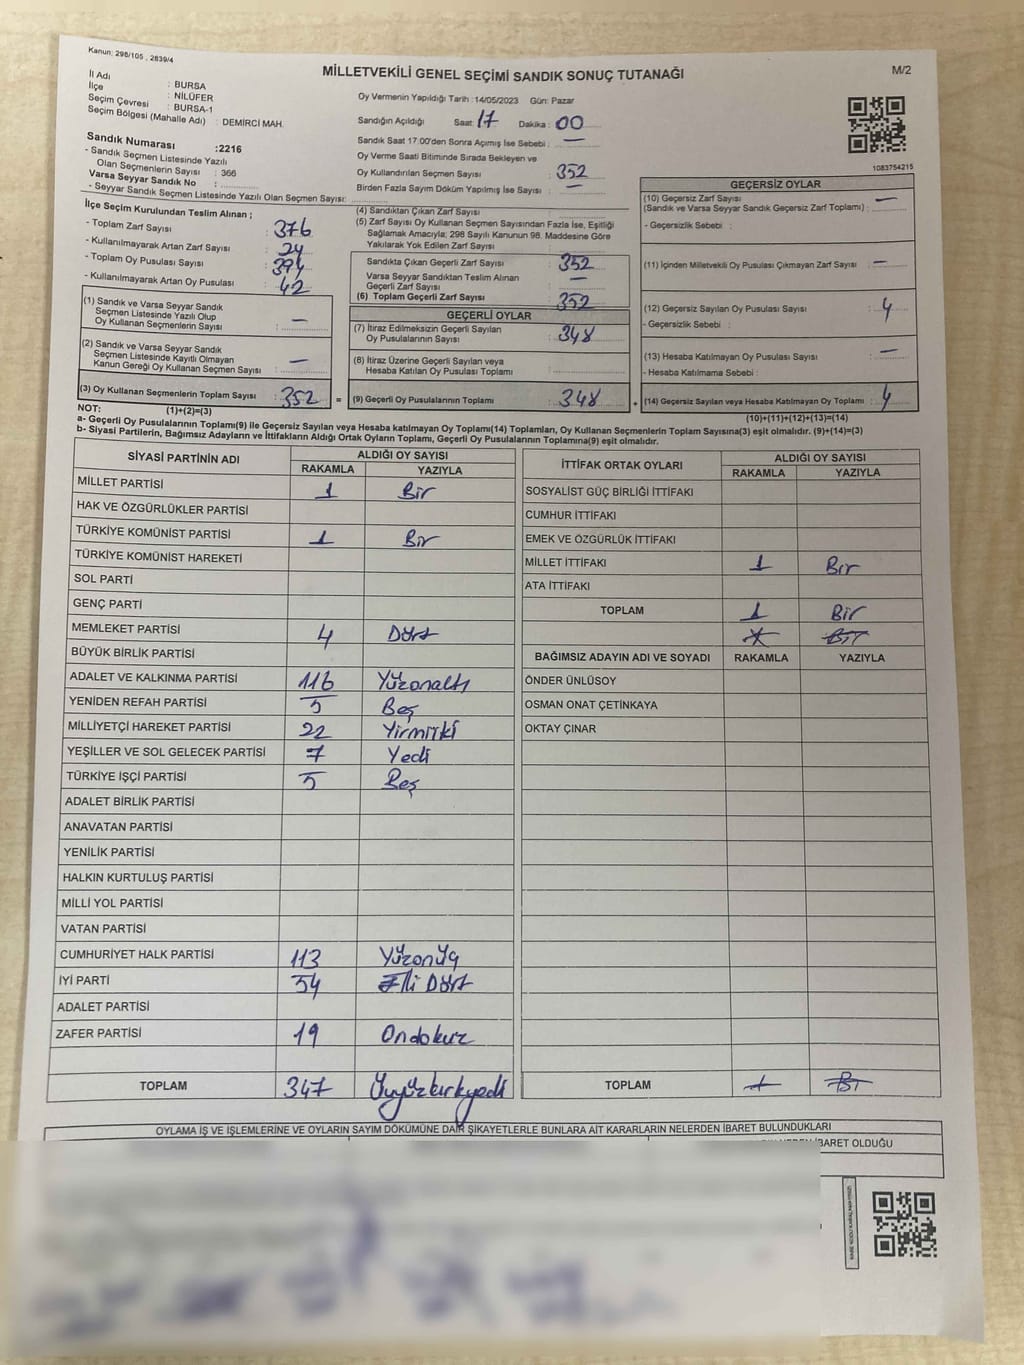 Kanun: 298/105 , 2839/4
MİLLETVEKİLİ GENEL SEÇİMİ SANDIK SONUÇ TUTANAĞI
M/2
İl Adı : BURSA
İlçe : NİLÜFER
Seçim Çevresi : BURSA-1
Seçim Bölgesi (Mahalle Adı) : DEMİRCİ MAH.
Sandık Numarası :2216
- Sandık Seçmen Listesinde Yazılı
Olan Seçmenlerin Sayısı : 366
Varsa Seyyar Sandık No :
- Seyyar Sandık Seçmen Listesinde Yazılı Olan Seçmen Sayısı:
İlçe Seçim Kurulundan Teslim Alınan ;
- Toplam Zarf Sayısı : 376
- Kullanılmayarak Artan Zarf Sayısı : 24
- Toplam Oy Pusulası Sayısı : 394
- Kullanılmayarak Artan Oy Pusulası : 42
(1) Sandık ve Varsa Seyyar Sandık
Seçmen Listesinde Yazılı Olup
Oy Kullanan Seçmenlerin Sayısı : —
(2) Sandık ve Varsa Seyyar Sandık
Seçmen Listesinde Kayıtlı Olmayan
Kanun Gereği Oy Kullanan Seçmen Sayısı : —
(3) Oy Kullanan Seçmenlerin Toplam Sayısı : 352 =
Oy Vermenin Yapıldığı Tarih :14/05/2023 Gün: Pazar
Sandığın Açıldığı Saat: 17 Dakika : 00
Sandık Saat 17:00'den Sonra Açımış İse Sebebi : —
Oy Verme Saati Bitiminde Sırada Bekleyen ve
Oy Kullandırılan Seçmen Sayısı : 352
Birden Fazla Sayım Döküm Yapılmış İse Sayısı : —
(4) Sandıktan Çıkan Zarf Sayısı :
(5) Zarf Sayısı Oy Kullanan Seçmen Sayısından Fazla İse, Eşitliği
Sağlamak Amacıyla; 298 Sayılı Kanunun 98. Maddesine Göre
Yakılarak Yok Edilen Zarf Sayısı :
Sandıkta Çıkan Geçerli Zarf Sayısı : 352
Varsa Seyyar Sandıktan Teslim Alınan
Geçerli Zarf Sayısı : —
(6) Toplam Geçerli Zarf Sayısı : 352
GEÇERLİ OYLAR
(7) İtiraz Edilmeksizin Geçerli Sayılan
Oy Pusulalarının Sayısı : 348
(8) İtiraz Üzerine Geçerli Sayılan veya
Hesaba Katılan Oy Pusulası Toplamı :
(9) Geçerli Oy Pusulalarının Toplamı : 348 +
1083754215
GEÇERSİZ OYLAR
(10) Geçersiz Zarf Sayısı
(Sandık ve Varsa Seyyar Sandık Geçersiz Zarf Toplamı) : —
- Geçersizlik Sebebi :
(11) İçinden Milletvekili Oy Pusulası Çıkmayan Zarf Sayısı : —
(12) Geçersiz Sayılan Oy Pusulası Sayısı : 4
- Geçersizlik Sebebi :
(13) Hesaba Katılmayan Oy Pusulası Sayısı : —
- Hesaba Katılmama Sebebi :
(14) Geçersiz Sayılan veya Hesaba Katılmayan Oy Toplamı : 4
NOT: (1)+(2)=(3) (10)+(11)+(12)+(13)=(14)
a- Geçerli Oy Pusulalarının Toplamı(9) ile Geçersiz Sayılan veya Hesaba katılmayan Oy Toplamı(14) Toplamları, Oy Kullanan Seçmenlerin Toplam Sayısına(3) eşit olmalıdır. (9)+(14)=(3)
b- Siyasi Partilerin, Bağımsız Adayların ve İttifakların Aldığı Ortak Oyların Toplamı, Geçerli Oy Pusulalarının Toplamına(9) eşit olmalıdır.
SİYASİ PARTİNİN ADI ALDIĞI OY SAYISI
RAKAMLA YAZIYLA
MİLLET PARTİSİ 1 Bir
HAK VE ÖZGÜRLÜKLER PARTİSİ
TÜRKİYE KOMÜNİST PARTİSİ 1 Bir
TÜRKİYE KOMÜNİST HAREKETİ
SOL PARTİ
GENÇ PARTİ
MEMLEKET PARTİSİ 4 Dört
BÜYÜK BİRLİK PARTİSİ
ADALET VE KALKINMA PARTİSİ 116 Yüzonaltı
YENİDEN REFAH PARTİSİ 5 Beş
MİLLİYETÇİ HAREKET PARTİSİ 22 Yirmiiki
YEŞİLLER VE SOL GELECEK PARTİSİ 7 Yedi
TÜRKİYE İŞÇİ PARTİSİ 5 Beş
ADALET BİRLİK PARTİSİ
ANAVATAN PARTİSİ
YENİLİK PARTİSİ
HALKIN KURTULUŞ PARTİSİ
MİLLİ YOL PARTİSİ
VATAN PARTİSİ
CUMHURİYET HALK PARTİSİ 113 Yüzonüç
İYİ PARTİ 54 Elli Dört
ADALET PARTİSİ
ZAFER PARTİSİ 19 Ondokuz
TOPLAM 347 Üçyüzkırkyedi
İTTİFAK ORTAK OYLARI ALDIĞI OY SAYISI
RAKAMLA YAZIYLA
SOSYALİST GÜÇ BİRLİĞİ İTTİFAKI
CUMHUR İTTİFAKI
EMEK VE ÖZGÜRLÜK İTTİFAKI
MİLLET İTTİFAKI 1 Bir
ATA İTTİFAKI
TOPLAM 1 Bir
1 Bir
BAĞIMSIZ ADAYIN ADI VE SOYADI RAKAMLA YAZIYLA
ÖNDER ÜNLÜSOY
OSMAN ONAT ÇETİNKAYA
OKTAY ÇINAR
TOPLAM 1 Bir
OYLAMA İŞ VE İŞLEMLERİNE VE OYLARIN SAYIM DÖKÜMÜNE DAİR ŞİKAYETLERLE BUNLARA AİT KARARLARIN NELERDEN İBARET BULUNDUKLARI
İBARET OLDUĞU